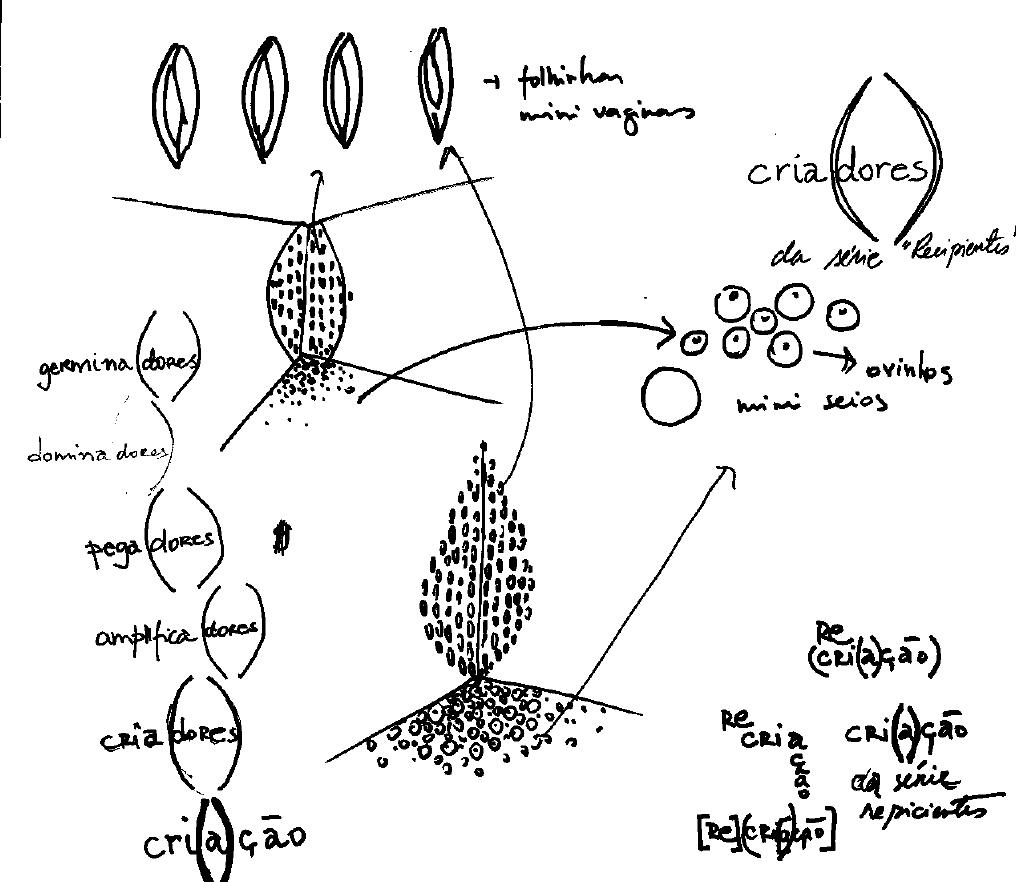 → folhinhas
mini vaginas
cria(dores)
da série "Recipientes"
→ ovinhos
mini seios
germina(dores)
domina dores)
pega(dores)
amplifica(dores)
cria(dores)
cri(a)ção
Re
(cri(a)ção)
Re
cria
ç
ã
o
cri(a)ção
da série
repicientes
[Re](cri(a)ção)]